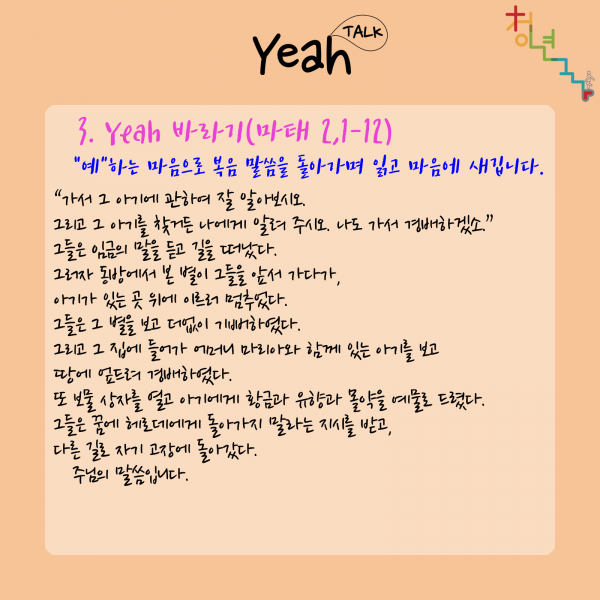 Yeah TALK
청년
3. Yeah 바라기(마태 2,1-12)
"예"하는 마음으로 복음 말씀을 돌아가며 읽고 마음에 새깁니다.
“가서 그 아기에 관하여 잘 알아보시오.
그리고 그 아기를 찾거든 나에게 알려 주시오. 나도 가서 경배하겠소.”
그들은 임금의 말을 듣고 길을 떠났다.
그러자 동방에서 본 별이 그들을 앞서 가다가,
아기가 있는 곳 위에 이르러 멈추었다.
그들은 그 별을 보고 더없이 기뻐하였다.
그리고 그 집에 들어가 어머니 마리아와 함께 있는 아기를 보고
땅에 엎드려 경배하였다.
또 보물 상자를 열고 아기에게 황금과 유향과 몰약을 예물로 드렸다.
그들은 꿈에 헤로데에게 돌아가지 말라는 지시를 받고,
다른 길로 자기 고장에 돌아갔다.
주님의 말씀입니다.